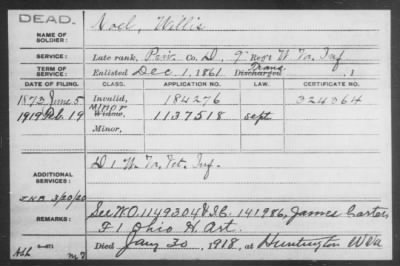 DEAD.
NAME OF SOLDIER: Noel, Willis
SERVICE: Late rank, Priv. Co. D, 9" Reg't W. Va. Inf
TERM OF SERVICE: Enlisted Dec. 1, 1861. Discharged Trans , 1
DATE OF FILING. CLASS. APPLICATION NO. LAW. CERTIFICATE NO.
1873 June 5 Invalid, 184276 324364
1919 Feb. 19 Minor Widow, 1137518 Sept
Minor,
ADDITIONAL SERVICES: D 1 W. Va. Vet. Inf.
3/20/20
REMARKS: See W.O. 1149304 & S.C. 141986, James Carter,
F 1 Ohio H. Art.
Died Jany 30, 1918, at Huntington W Va